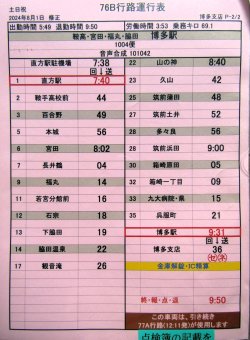 土日祝
76B行路運行表
2024年8月1日 修正
博多支店 P-2/2
出勤時間 5:49 退勤時間 9:50 労働時間 3:53 乗務キロ 69.1
鞍高・宮田・福丸・脇田 博多駅
1004便
音声合成 101042
直方駅駐機場 7:38
回↓送
1 直方駅 7:40
2 鞍手高校前 44
3 百合野 49
5 本城 56
6 宮田 8:02
7 長井鶴 04
9 福丸 14
11 若宮分館前 16
12 石宗 18
13 下脇田 19
14 脇田温泉 22
17 観音滝 26
22 山の神 8:40
23 久山 42
25 筑前蒲田 48
27 筑前土井 52
28 多々良 56
28 筑前浜田 9:00
30 箱崎原田 05
32 箱崎一丁目 09
33 九大病院・県 15
35 呉服町 21
博多駅 9:31
回↓送
博多支店 36
金庫解錠・IC精算
終・報・点・退 9:50
この車両は、引き続き
77A行路(12:11発)が使用します
点検簿の記載を